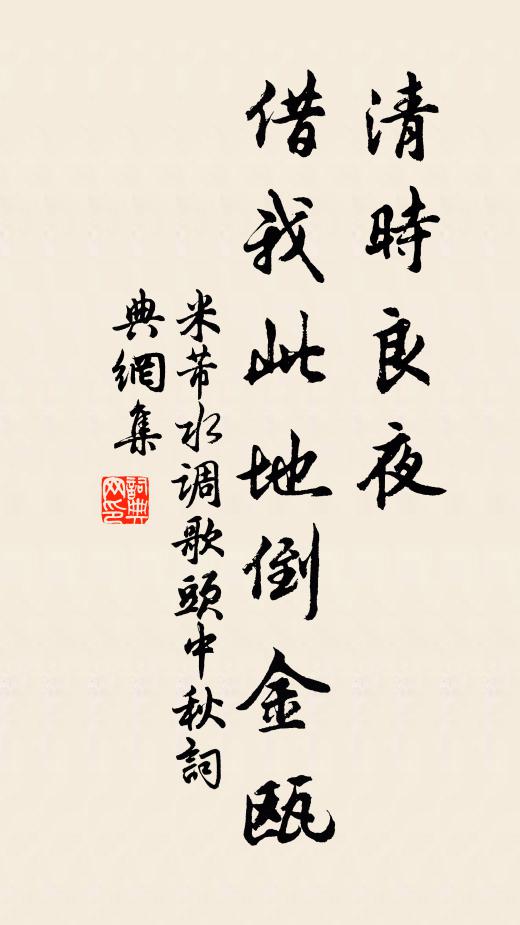 清時良夜
借我此地倒金瓯
米芾水调歌頭中秋詞
典網集
詞典网印